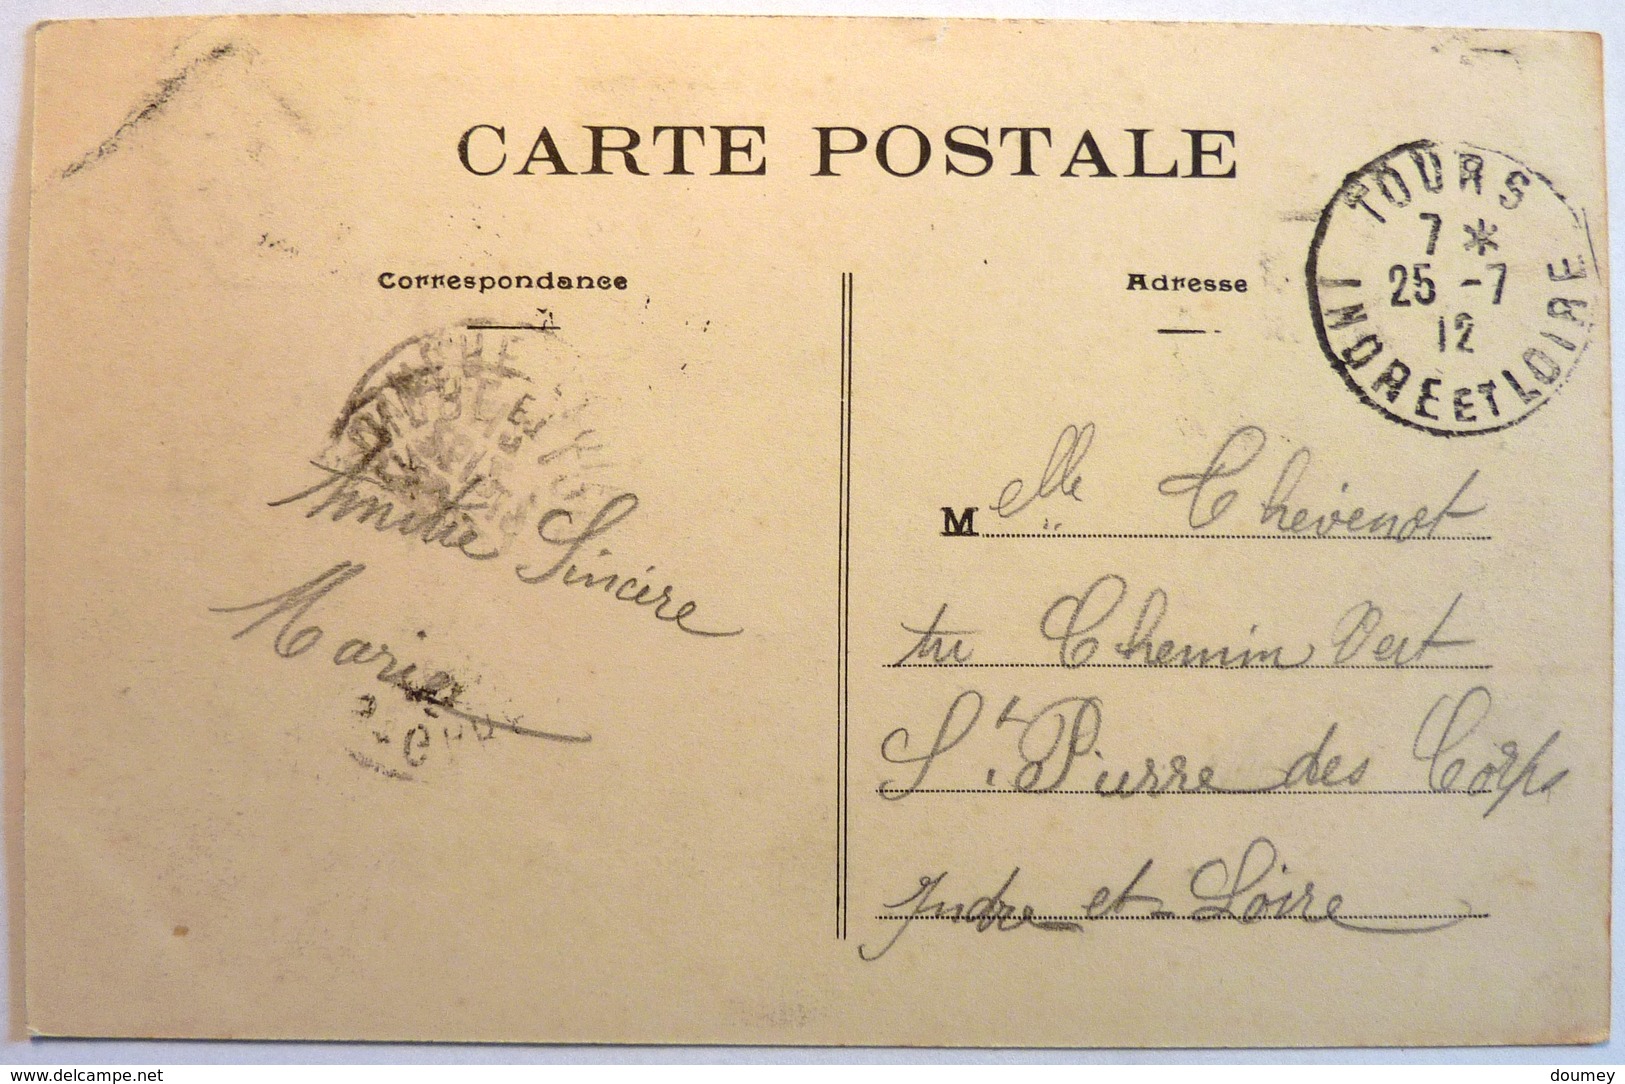 CARTE POSTALE
Correspondance
Amitié Sincère
Marie
Adresse
TOURS
7 *
25 -7
12
INDRE ET LOIRE
Melle Thévenot
Chemin Vert
St Pierre des Corps
Indre et Loire
delcampe.net
doumey